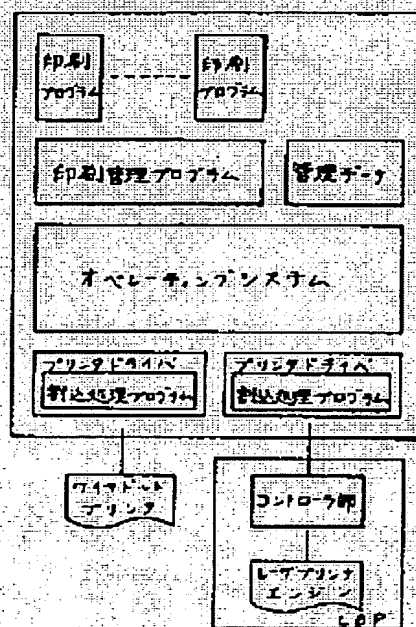 印刷
プログラム
印刷
プログラム
印刷管理プログラム
管理データ
オペレーティングシステム
プリンタドライバ
割込処理プログラム
プリンタドライバ
割込処理プログラム
ワイヤドット
プリンタ
コントローラ部
レーザプリンタ
エンジン
LBP